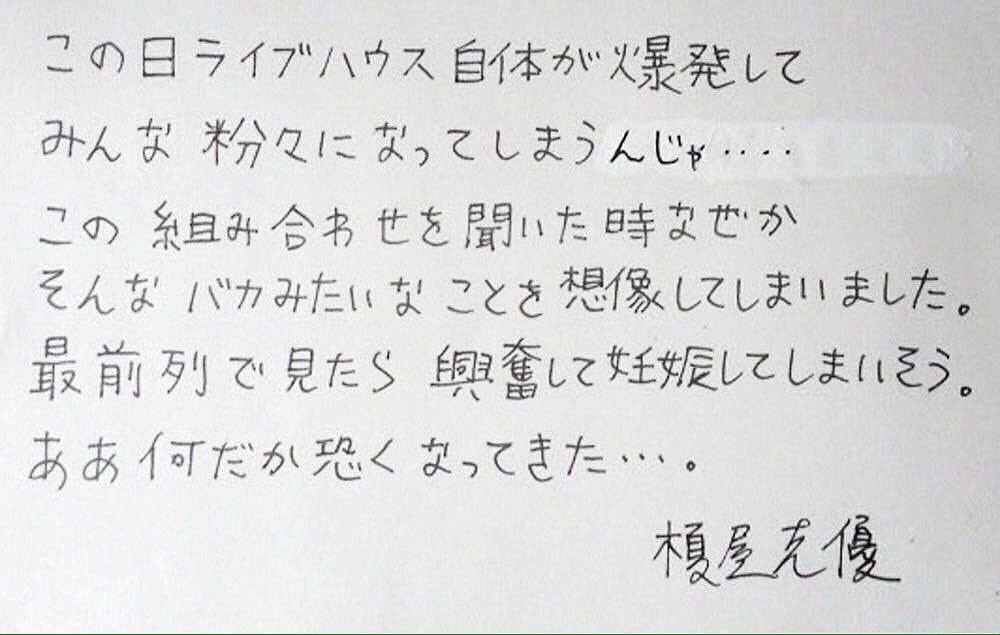 この日ライブハウス自体が爆発して
みんな粉々になってしまうんじゃ‥‥
この組み合わせを聞いた時なぜか
そんなバカみたいなことを想像してしまいました。
最前列で見たら興奮して妊娠してしまいそう。
ああ何だか恐くなってきた…。
榎屋克優